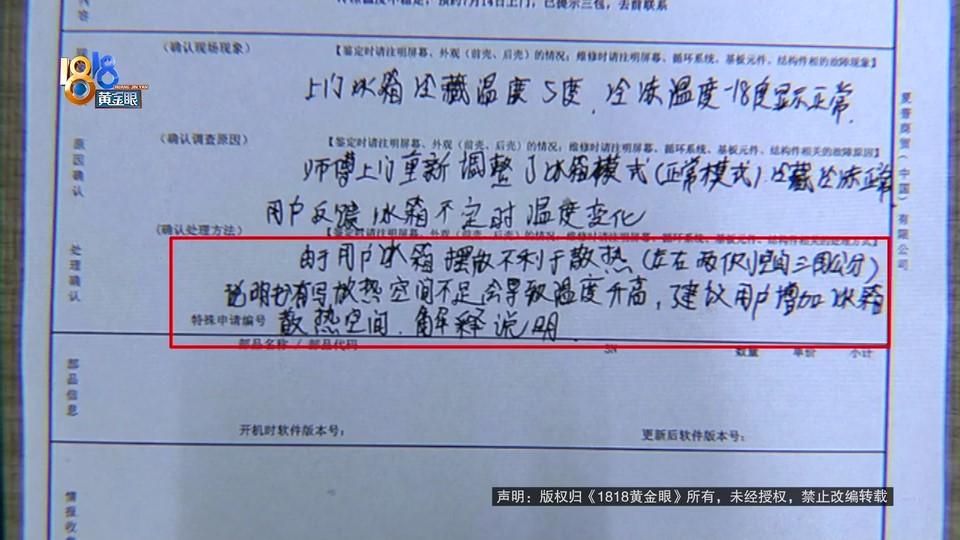 冷冻温度不稳定，预约7月14日上门，已提示三包，去前联系
内容
1818
HUANG JIN YAN
黄金眼
（确认现场现象）
【鉴定时请注明屏幕、外观（前壳、后壳）的情况；维修时请注明屏幕、循环系统、基板元件、结构件相的故障现象】
上门冰箱冷藏温度5度，冷冻温度-18度显示正常
原因确认
（确认调查原因）
【鉴定时请注明屏幕、外观（前壳、后壳）的情况；维修时请注明屏幕、循环系统、基板元件、结构件相关的故障原因】
师傅上门重新调整了冰箱模式(正常模式).冷藏冷冻正常
用户反馈冰箱不定时温度变化
处理确认
（确认处理方法）
由于用户冰箱摆放不利于散热(左右两侧空间三四公分)
说明书有写散热空间不足会导致温度升高，建议用户增加冰箱
特殊申请编号
散热空间.解释说明.
部品信息
部品名称 / 部品代码
SN
数量
单价
小计
开机时软件版本号：
更新后软件版本号：
情报收
夏普商贸（中国）有限公司
声明：版权归《1818黄金眼》所有，未经授权，禁止改编转载